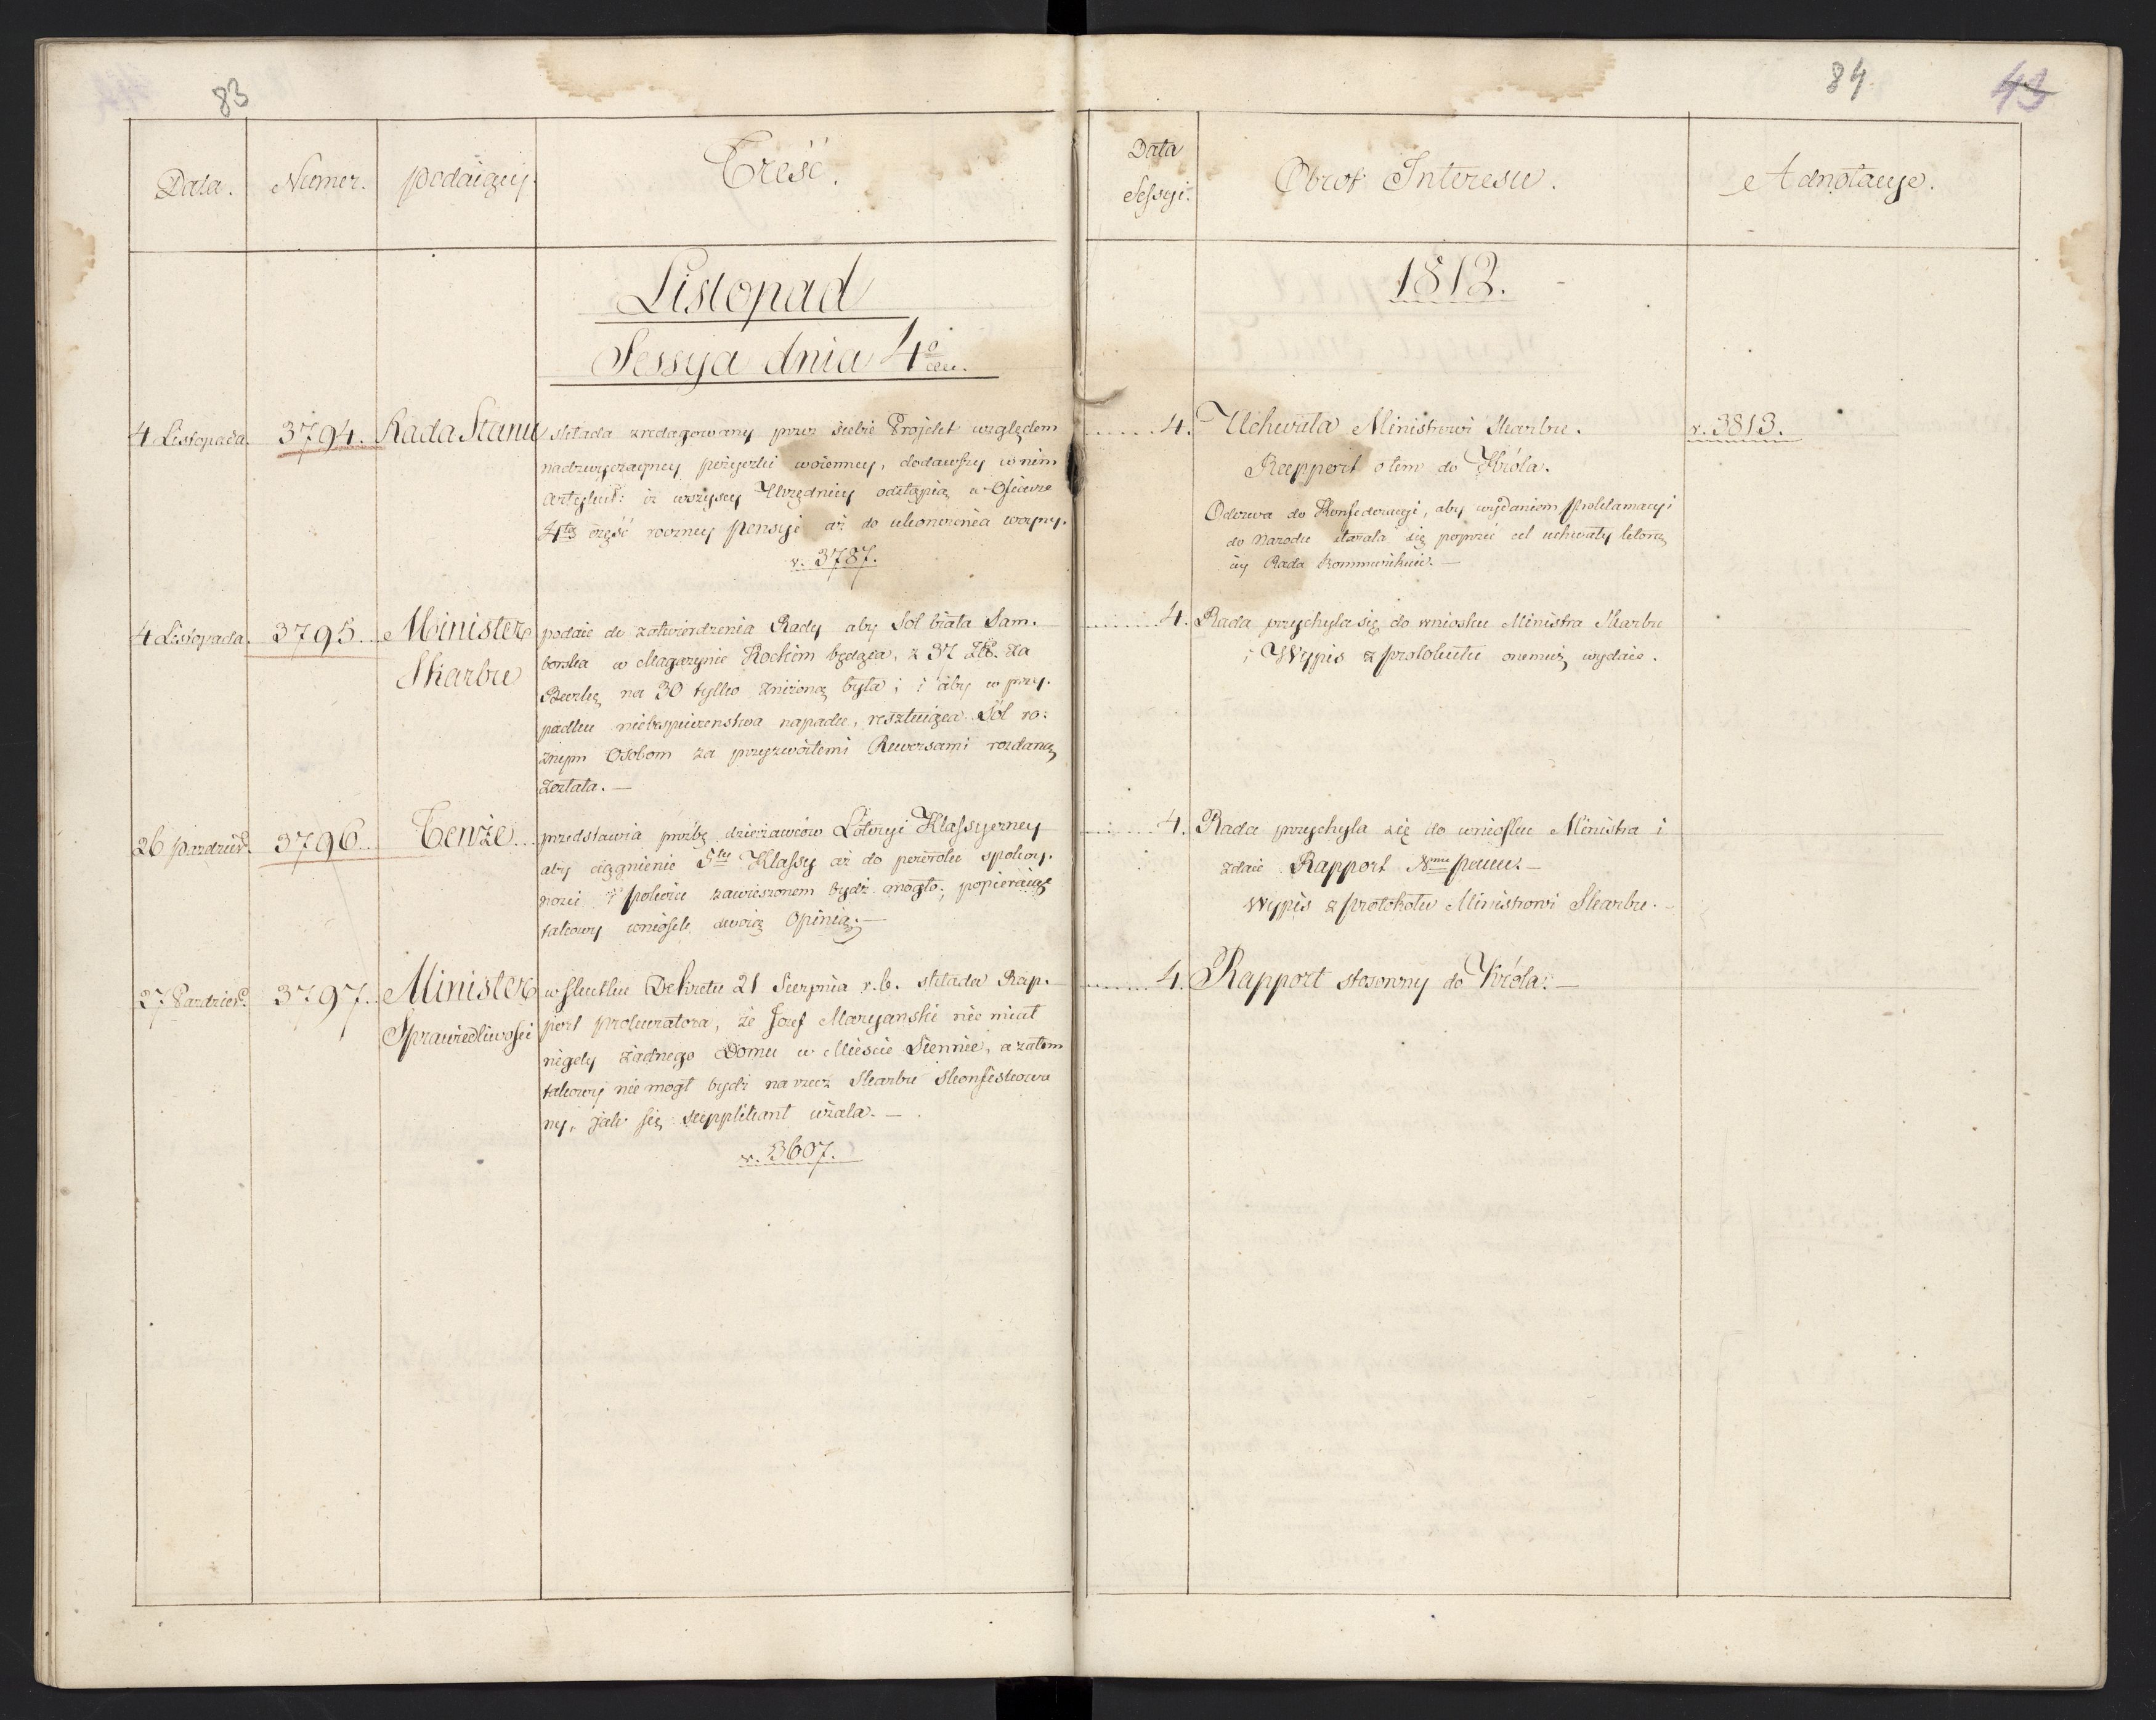 83
Data.
Numer.
podaiący.
Treść.
Listopad
Sessyja dnia 4o
4 Listopada.
3794.
Rada Stanu
składa zredagowany przez siebie Projekt względem
nadzwyczayney pożyczki woienney, dodawszy w nim
Artykuł: iż wszyscy Urzędnicy odstąpią w Ofierze
4tą część roczney pensyi aż do ukończenia woyny.
v. 3787.
4 Listopada.
3795.
Minister
Skarbu
podaie do zatwierdzenia Rady aby Sól biała Sam-
borska w Magazynie Kockim będąca, z 37 Zł. za
Beczkę na 30 tylko zniżoną była; i aby w przy-
padku niebezpieczenstwa napadu, resztuiąca Sól ró:
żnym Osobom za przyzwoitemi Rewersami rozdaną
została. —
26 Pazdzier.
3796
Tenże
przedstawia prożbę dzierżawców Loteryi Klassyczney
aby ciągnienie 5tey Klassy aż do powrotu spokoy-
ności i pokoiu zawieszonem bydź mogło; popieraiąc
takowy wniosek swoią Opinią. —
27 Pazdzier.
3797.
Minister
Sprawiedliwości
w skutku Dekretu 21 Sierpnia r. b. składa Rap-
port Prokuratora, że Jozef Maryanski nie miał
nigdy żadnego Domu w Mieście Siennie, a zatem
takowy nie mogł bydź na rzecz Skarbu skonfiskowa
ny, jak się supplikant użala. —
v. 3607.
84.
43
Data
Sessyi.
Obrot Interesu.
Adnotacye.
1812.
4.
Uchwała Ministrowi Skarbu.
Rapport o tem do Króla.
Odezwa do Konfederacyi, aby wydaniem proklamacyi
do Narodu starała się poprzeć cel uchwały którą
iey Rada kommunikuie. —
v. 3813.
4.
Rada przychyla się do wniosku Ministra Skarbu
i Wypis z protokułu onemuż wydaie.
4.
Rada przychyla się do wniosku Ministra i
zdaie Rapport Nmu Panu. —
Wypis z protokołu Ministrowi Skarbu. —
4.
Rapport stosowny do Króla. —